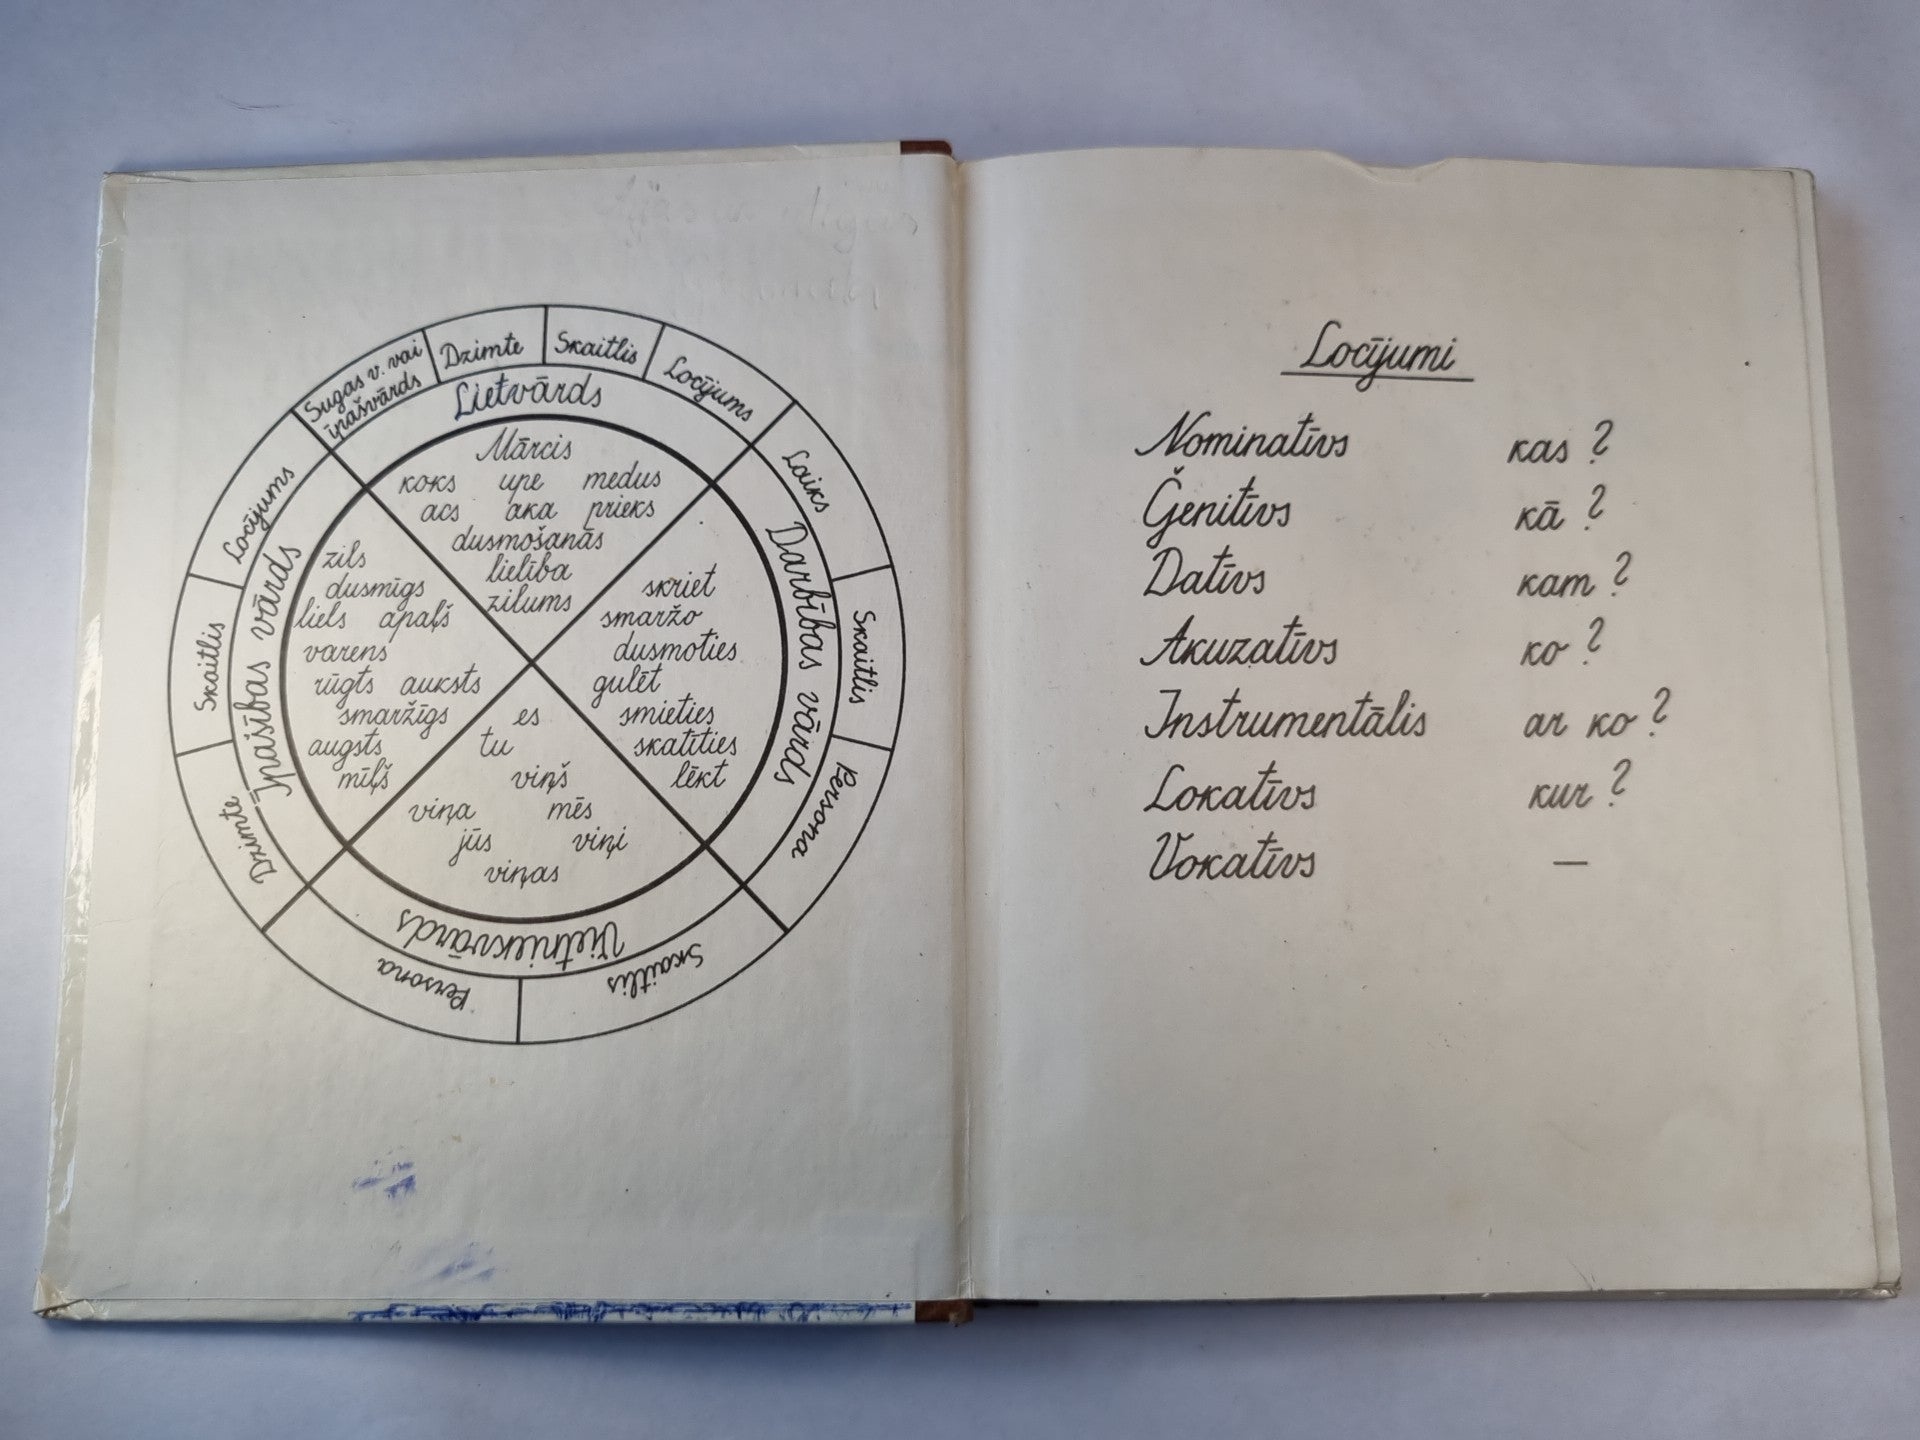 Sugas v. vai
īpašvārds
Dzimte
Skaitlis
Locījums
Lietvārds
Mārcis
koks upe medus
acs aka prieks
dusmošanās
lielība
zilums
Laiks
Skaitlis
Persona
Darbības vārds
skriet
smaržo
dusmoties
gulēt
smieties
skatīties
lēkt
Skaitlis
Persona
Vietniekvārds
es
tu
viņš
viņa mēs
jūs viņi
viņas
Dzimte
Skaitlis
Locījums
Īpašības vārds
zils
dusmīgs
liels apaļš
varens
rūgts auksts
smaržīgs
augsts
mīļš
Locījumi
Nominatīvs kas ?
Ģenitīvs kā ?
Datīvs kam ?
Akuzatīvs ko ?
Instrumentālis ar ko ?
Lokatīvs kur ?
Vokatīvs —